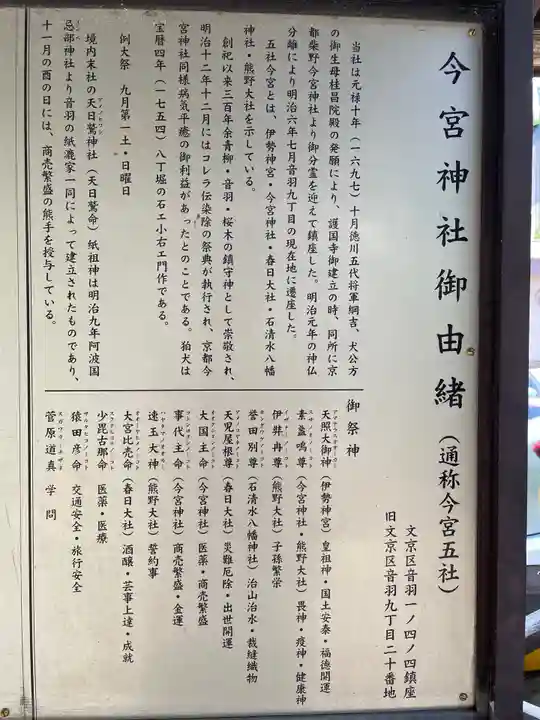 今宮神社御由緒(通称今宮五社)
文京区音羽一ノ四ノ四鎮座
旧文京区音羽九丁目二十番地
当社は元禄十年(一六九七)十月徳川五代将軍綱吉、犬公方
の御生母桂昌院殿の発願により、護国寺御建立の時、同所に京
都紫野今宮神社より御分霊を迎えて鎮座した。明治元年の神仏
分離により明治六年七月音羽九丁目の現在地に遷座した。
五社今宮とは、伊勢神宮・今宮神社・春日大社・石清水八幡
神社・熊野大社を示している。
創祀以来三百年余青柳・音羽・桜木の鎮守神として崇敬され、
明治十二年十二月にはコレラ伝染除の祭典が執行され、京都今
宮神社同様病気平癒の御利益があったとのことである。狛犬は
宝暦四年(一七五四)八丁堀の石工小右エ門作である。
例大祭 九月第一土・日曜日
境内末社の天日鷲神社(天日鷲命)紙祖神は明治九年阿波国
忌部神社より音羽の紙漉家一同によって建立されたものであり、
十一月の酉の日には、商売繁盛の熊手を授与している。
御祭神
天照大御神(伊勢神宮)皇祖神・国土安泰・福徳開運
素盞嗚尊(今宮神社・熊野大社)畏神・疫神・健康神
伊弉冉尊(熊野大社)子孫繁栄
誉田別尊(石清水八幡神社)治山治水・裁縫織物
天児屋根尊(春日大社)災難厄除・出世開運
大国主命(今宮神社)医薬・商売繁盛
事代主命(今宮神社)商売繁盛・金運
速玉大神(熊野大社)誓約事
大宮比売命(春日大社)酒醸・芸事上達・成就
少毘古那命 医薬・医療
猿田彦命 交通安全・旅行安全
菅原道真 学問